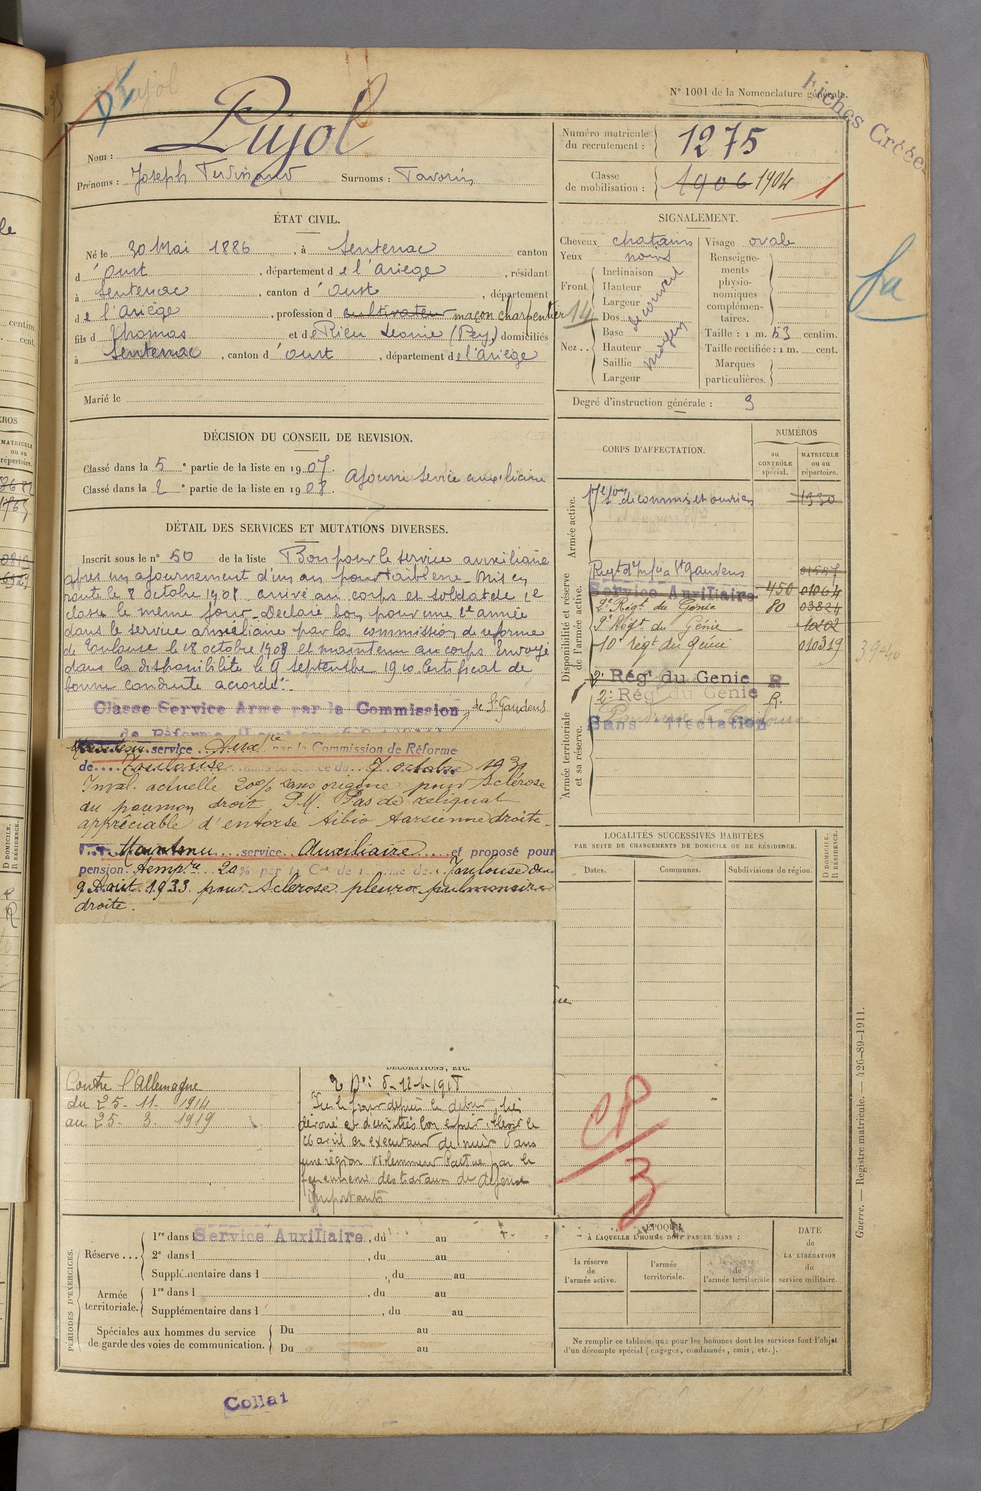 N° 1001 de la Nomenclature générale
Fiches
Pujol
Nom : Pujol
Prénoms : Joseph Ferdinand Surnoms : Tavorin
Numéro matricule du recrutement : 1275
Classe de mobilisation : 1906 1904
1
ÉTAT CIVIL.
Né le 30 Mai 1886, à Sentenac canton
d'Oust, département de l'Ariège, résidant
à Sentenac, canton d'Oust, département
de l'Ariège, profession d cultivateur maçon charpentier
fils d Thomas et de Rieu Leonie (Bey) domiciliés
à Sentenac, canton d'Oust, département de l'Ariège
Marié le
SIGNALEMENT.
Cheveux chatains Visage ovale
Yeux noirs
Front. Inclinaison
Hauteur
Largeur
Nez .. Dos
Base
Hauteur
Saillie
Largeur
moyen
Renseignements physionomiques complémentaires.
Taille : 1 m. 53 centim.
Taille rectifiée : 1 m. cent.
Marques particulières.
Degré d'instruction générale : 3
DÉCISION DU CONSEIL DE REVISION.
Classé dans la 5e partie de la liste en 1907.
Classé dans la 2e partie de la liste en 1908.
Ajourné Service auxiliaire
DÉTAIL DES SERVICES ET MUTATIONS DIVERSES.
Inscrit sous le n° 50 de la liste Bon pour le service auxiliaire
après un ajournement d'un an pour faiblesse. Mis en
route le 8 octobre 1908 arrivé au corps et soldat de 2e
classe le même jour. Déclaré bon pour une 2e année
dans le service auxiliaire par la commission de réforme
de Toulouse le 18 octobre 1909 et maintenu au corps. Envoyé
dans la disponibilité le 9 septembre 1910. Certificat de
bonne conduite accordé.
Classe Service Armé par la Commission de St Gaudens
service Auxre par la Commission de Réforme
de Toulouse dans sa séance du 7 octobre 193
Inval. actuelle 20% sans origine pour Sclérose
du poumon droit. P.M. Pas de reliquat
appréciable d'entorse tibio tarsienne droite.
Maintenu service Auxiliaire et proposé pour
pension tempre 20% Toulouse du
9 Août 1933 pour sclérose pleuro pulmonaire
droite.
CORPS D'AFFECTATION.
NUMÉROS
AU CONTRÔLE SPÉCIAL.
MATRICULE OU AU RÉPERTOIRE.
Armée active.
de commis et ouvriers 1330
Disponibilité et réserve de l'armée active.
Regt d'Infie à St Gaudens
Service Auxiliaire 450 01064
2e Régt du Génie 80 03824
Régt du Génie
10e régt du génie 010319
Armée territoriale et sa réserve.
2e Rég' du Genie R
2e Rég' du Genie R.
Sans affectation
LOCALITÉS SUCCESSIVES HABITÉES
PAR SUITE DE CHANGEMENTS DE DOMICILE OU DE RÉSIDENCE.
Dates.
Communes.
Subdivisions de région.
D DOMICILE.
R RÉSIDENCE.
Contre l'Allemagne
du 25 - 11 - 1914
au 25 - 3 - 1919
DÉCORATIONS, ETC.
CP/3
importants
PÉRIODES D'EXERCICES.
Réserve ... 1re dans l Service Auxiliaire, du au
2e dans l , du au
Supplémentaire dans l , du au
Armée territoriale. 1re dans l , du au
Supplémentaire dans l , du au
Spéciales aux hommes du service de garde des voies de communication. Du au
Du au
ÉPOQUE
À LAQUELLE L'HOMME DOIT PASSER DANS :
la réserve de l'armée active.
l'armée territoriale.
la réserve de l'armée territoriale
DATE DE LA LIBÉRATION du service militaire.
Ne remplir ce tableau que pour les hommes dont les services font l'objet
d'un décompte spécial (engagés, condamnés, omis, etc.).
Guerre. — Registre matricule. — 426-89-1911.
Collat